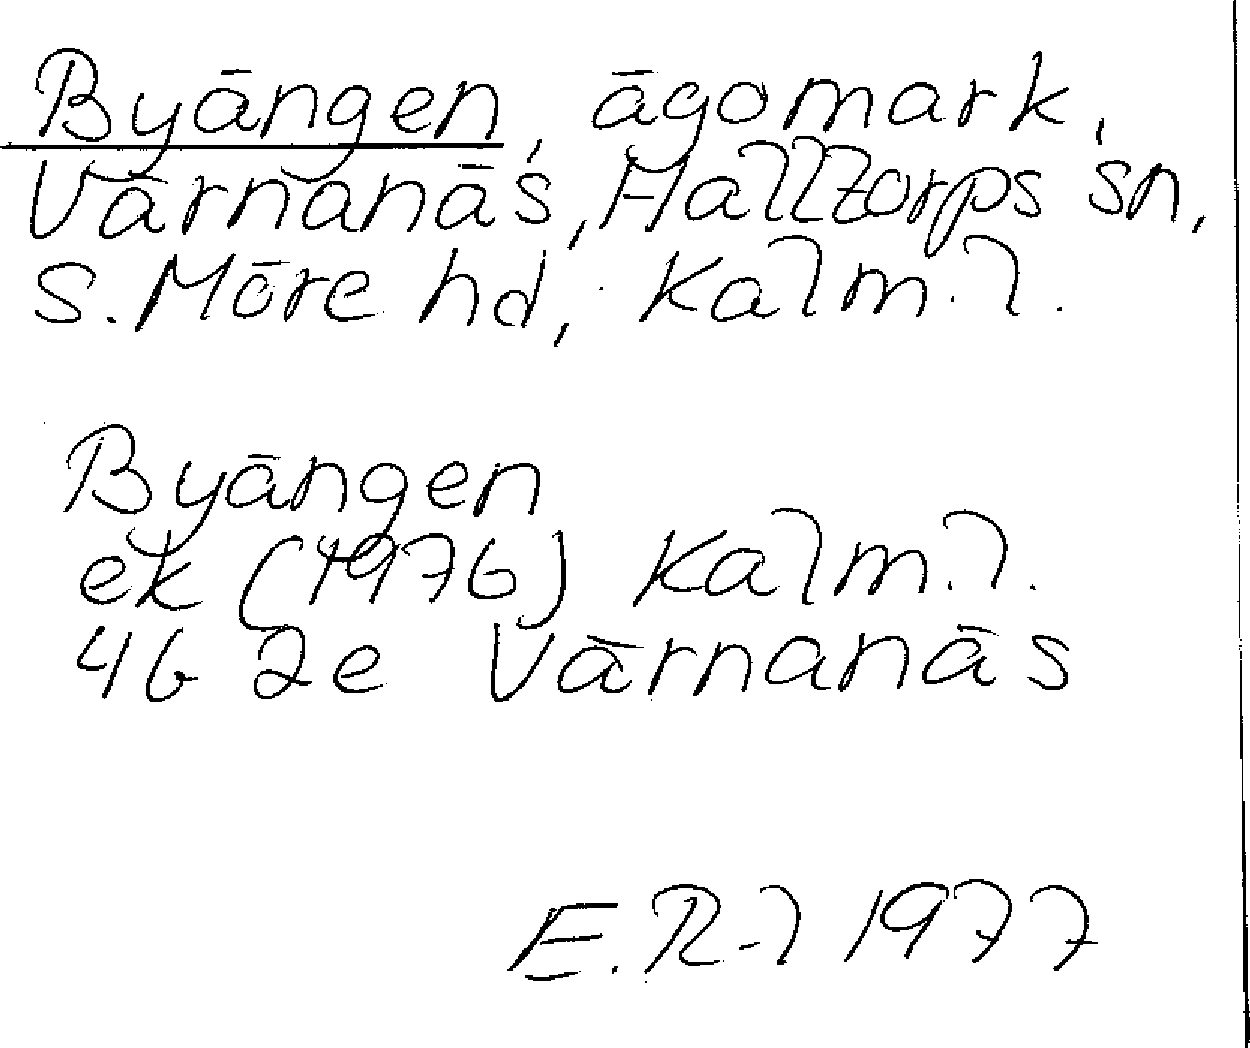 Byängen, ägomark,
Värnanäs, Halltorps sn,
S. Möre hd, Kalm. l.
Byängen
ek (1976) Kalm. l.
4G 2e Värnanäs
E. R-l 1977